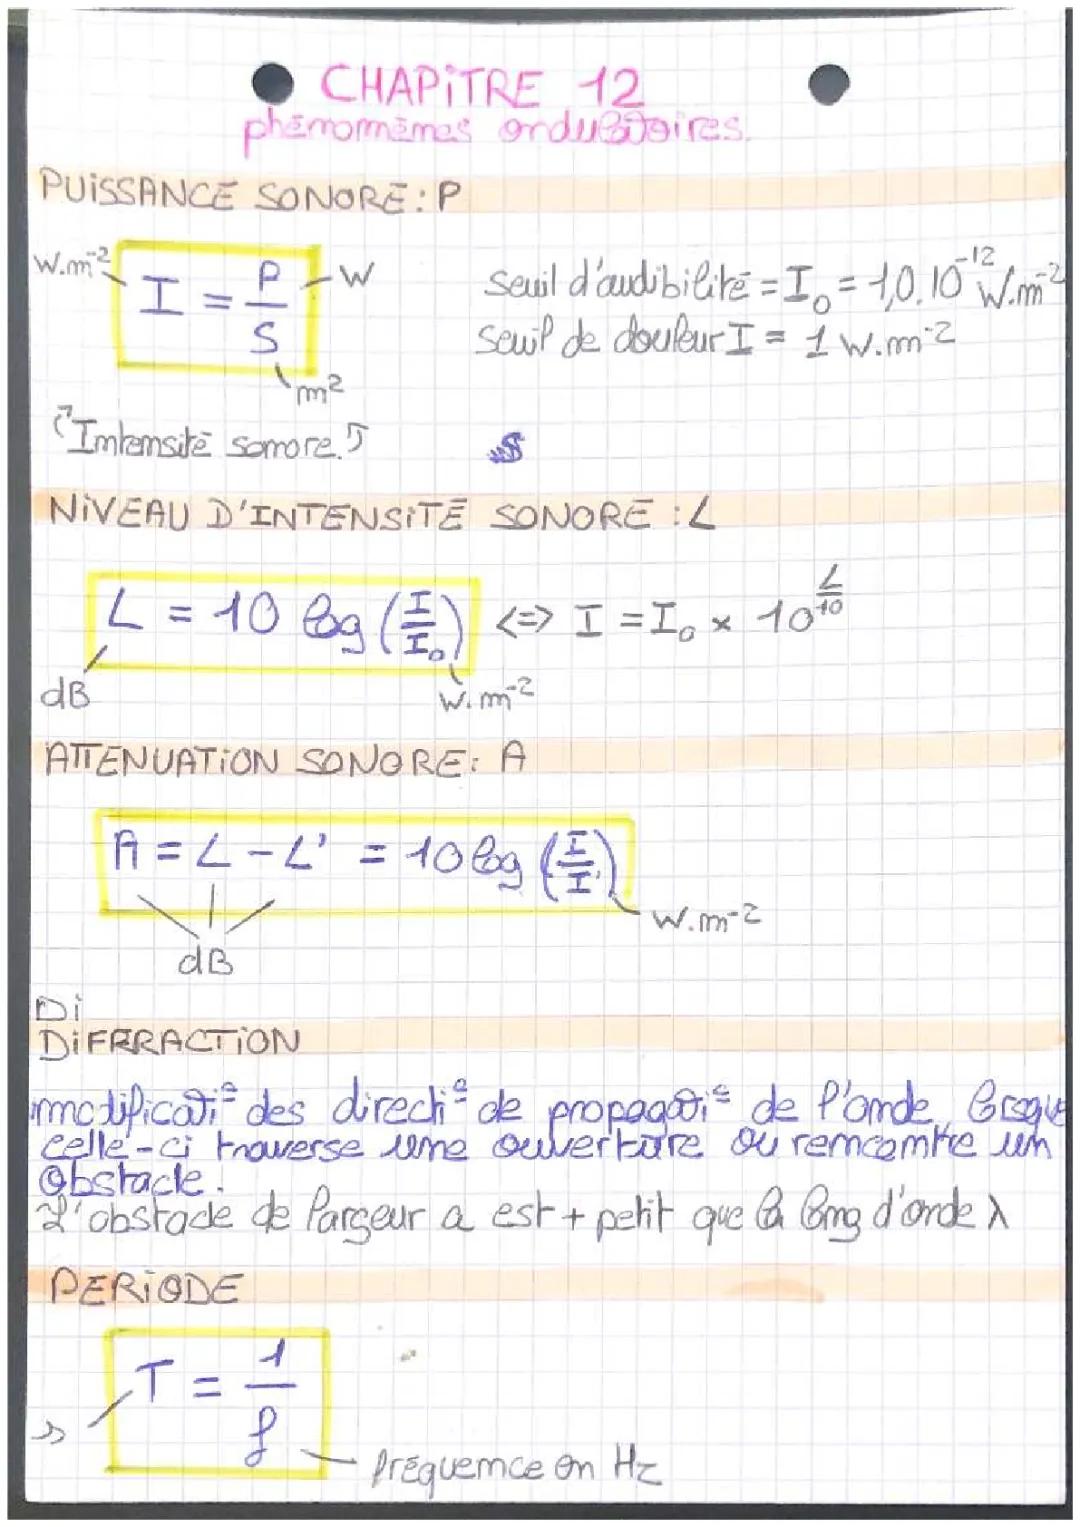 CHAPITRE 12
phénomènes ondulatoires.
PUISSANCE SONORE : P
W.m⁻² I = P/S W
m²
Seuil d'audibilité = I₀ = 1,0.10⁻¹² W.m⁻²
Seuil de douleur I = 1 W.m⁻²
Intensité sonore.
NIVEAU D'INTENSITÉ SONORE : L
L = 10 log (I/I₀) <=> I = I₀ × 10^(L/10)
dB W.m⁻²
ATTENUATION SONORE : A
A = L - L' = 10 log (I/I')
W.m⁻²
dB
Di
DIFFRACTION
modificati° des directi° de propagati° de l'onde lorsque
celle-ci traverse une ouverture ou rencontre un
obstacle.
L'obstacle de largeur a est + petit que la long d'onde λ
PERIODE
T = 1/f
s
fréquence en Hz